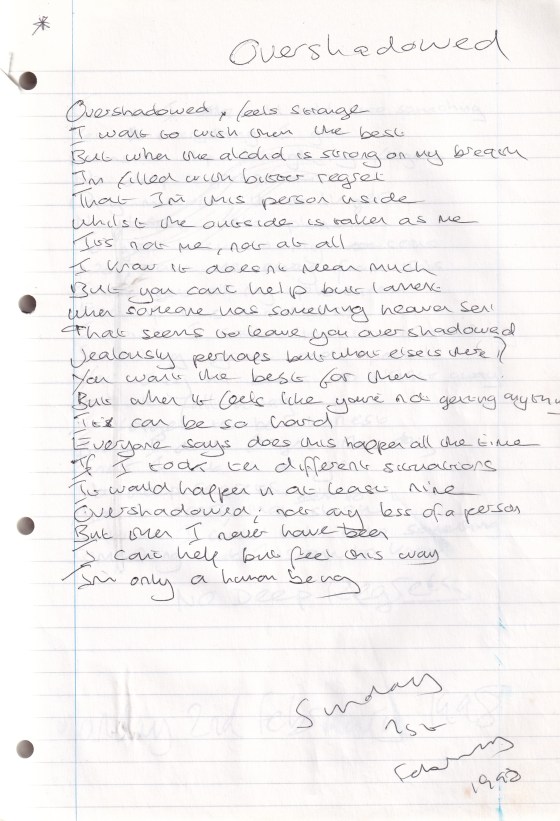 *
Overshadowed
Overshadowed, feels strange
I want to wish them the best
But when the alcohol is strong on my breath
I'm filled with bitter regret
That I'm this person inside
Whilst the outside is taken as me
It's not me, not at all
I know it doesn't mean much
But you can't help but lament
When someone has something heaven sent
That seems to leave you overshadowed
Jealously perhaps but what else is there?
You want the best for them
But when it feels like you're not getting anything
It can be so hard
Everyone says does this happen all the time
If I took ten different situations
It would happen in at least nine
Overshadowed; not any less of a person
But then I never have been
I can't help but feel this way
I'm only a human being
Sunday
1st
February
1998